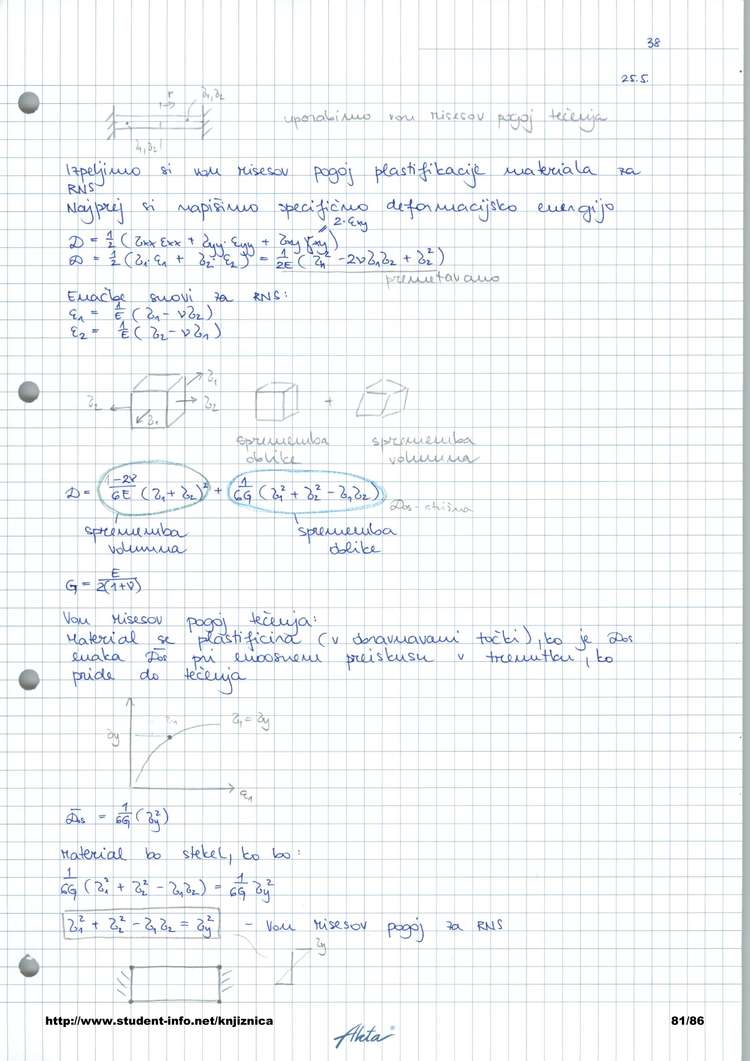 38
25.5.
r
σ1,σ2
σ1,σ2
uporabimo von Misesov pogoj tečenja
Izpeljimo si von Misesov pogoj plastifikacije materiala za
RNS
Najprej si napišimo specifično deformacijsko energijo
2·εxy
D = 1/2 (σxx εxx + σyy·εyy + σxy γxy)
D = 1/2 (σ1·ε1 + σ2·ε2) = 1/2E (σ1² - 2νσ1σ2 + σ2²)
premetavamo
Enačbe snovi za RNS:
ε1 = 1/E (σ1 - νσ2)
ε2 = 1/E (σ2 - νσ1)
σ1
σ2 σ2
σ1
+
sprememba sprememba
oblike volumna
D = 1-2ν/6E (σ1 + σ2)² + 1/6G (σ1² + σ2² - σ1σ2)
sprememba sprememba
volumna oblike
G = E/2(1+ν)
Von Misesov pogoj tečenja:
Material se plastificira (v obravnavani točki), ko je Dos
enaka D̄os pri enoosnem preiskusu v trenutku, ko
pride do tečenja
σ1 = σy
σy
ε1
D̄s = 1/6G (σy²)
Material bo stekel, ko bo:
1/6G (σ1² + σ2² - σ1σ2) = 1/6G σy²
σ1² + σ2² - σ1σ2 = σy² - Von Misesov pogoj za RNS
σy
http://www.student-info.net/knjiznica
81/86
Akta